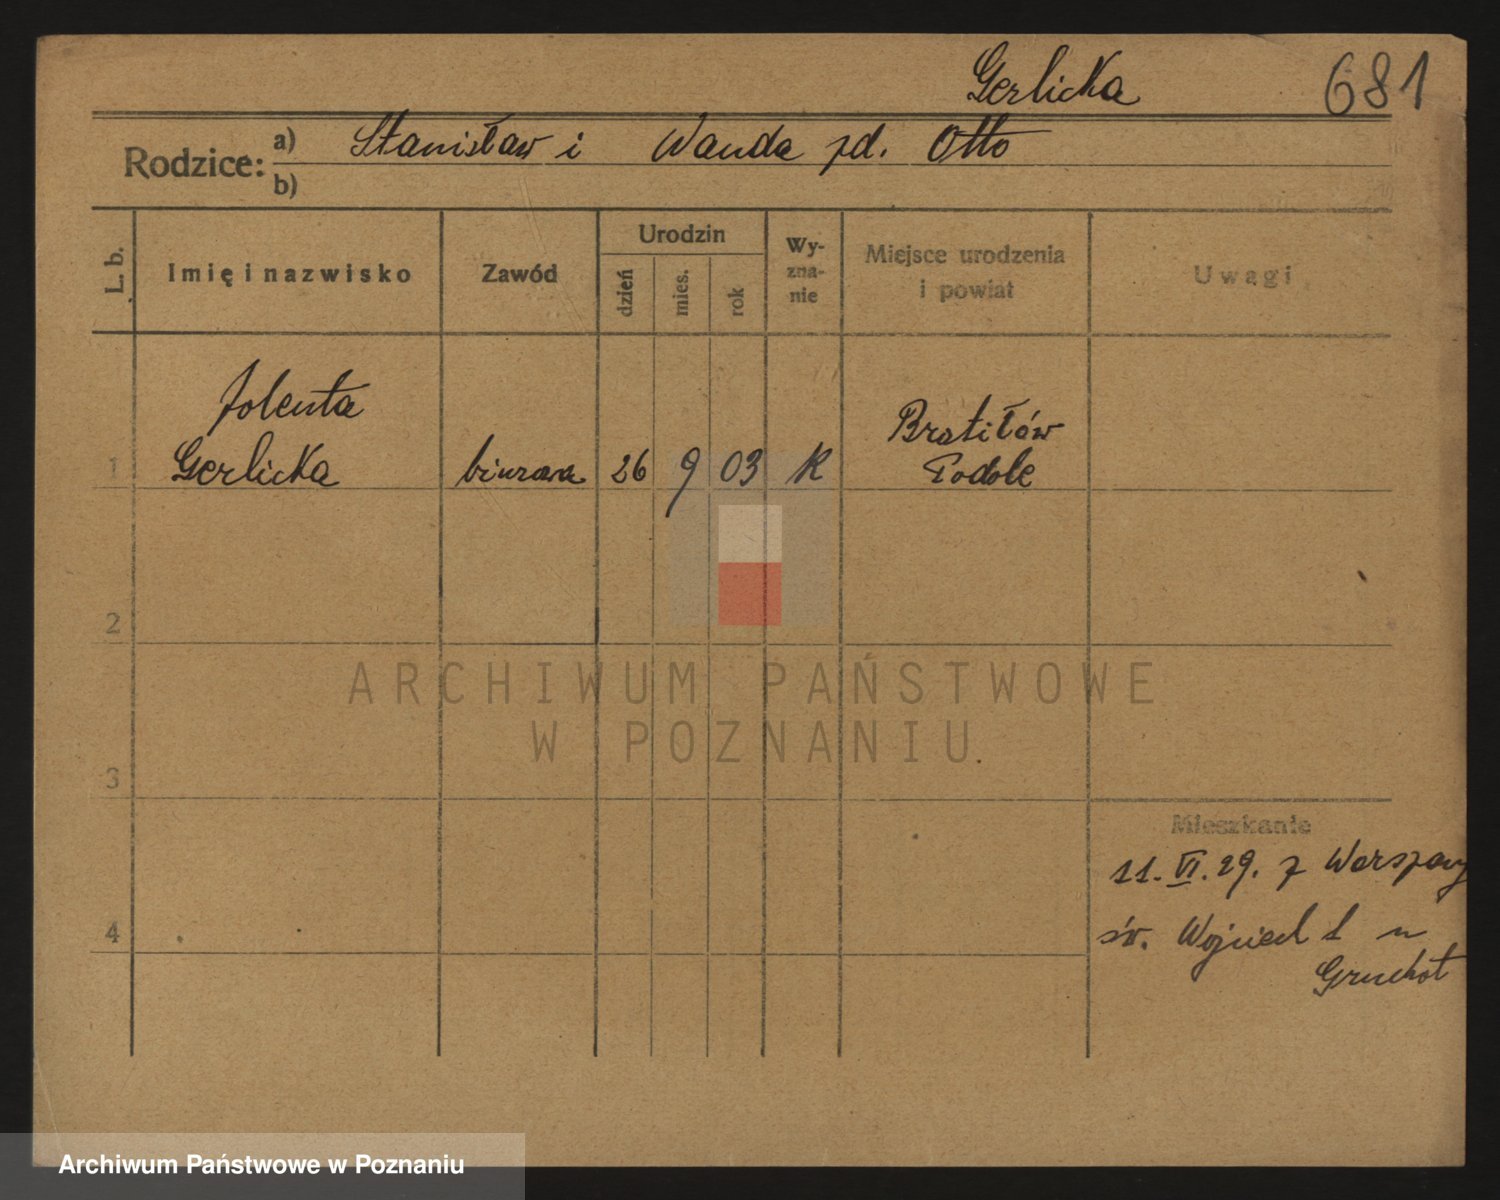 Gerlicka 681
Rodzice: a) Stanisław i Wanda zd. Otto
b)
L. b. Imię i nazwisko Zawód Urodzin dzień mies. rok Wy-zna-nie Miejsce urodzenia i powiat Uwagi
Jolenta Bratiłów
1 Gerlicka biurowa 26 9 03 K Podole
2
ARCHIWUM PAŃSTWOWE
W POZNANIU
3
Mieszkanie
11. VI. 29. z Warszawy
4 św. Wojciech 1 u
Gruchot
Archiwum Państwowe w Poznaniu